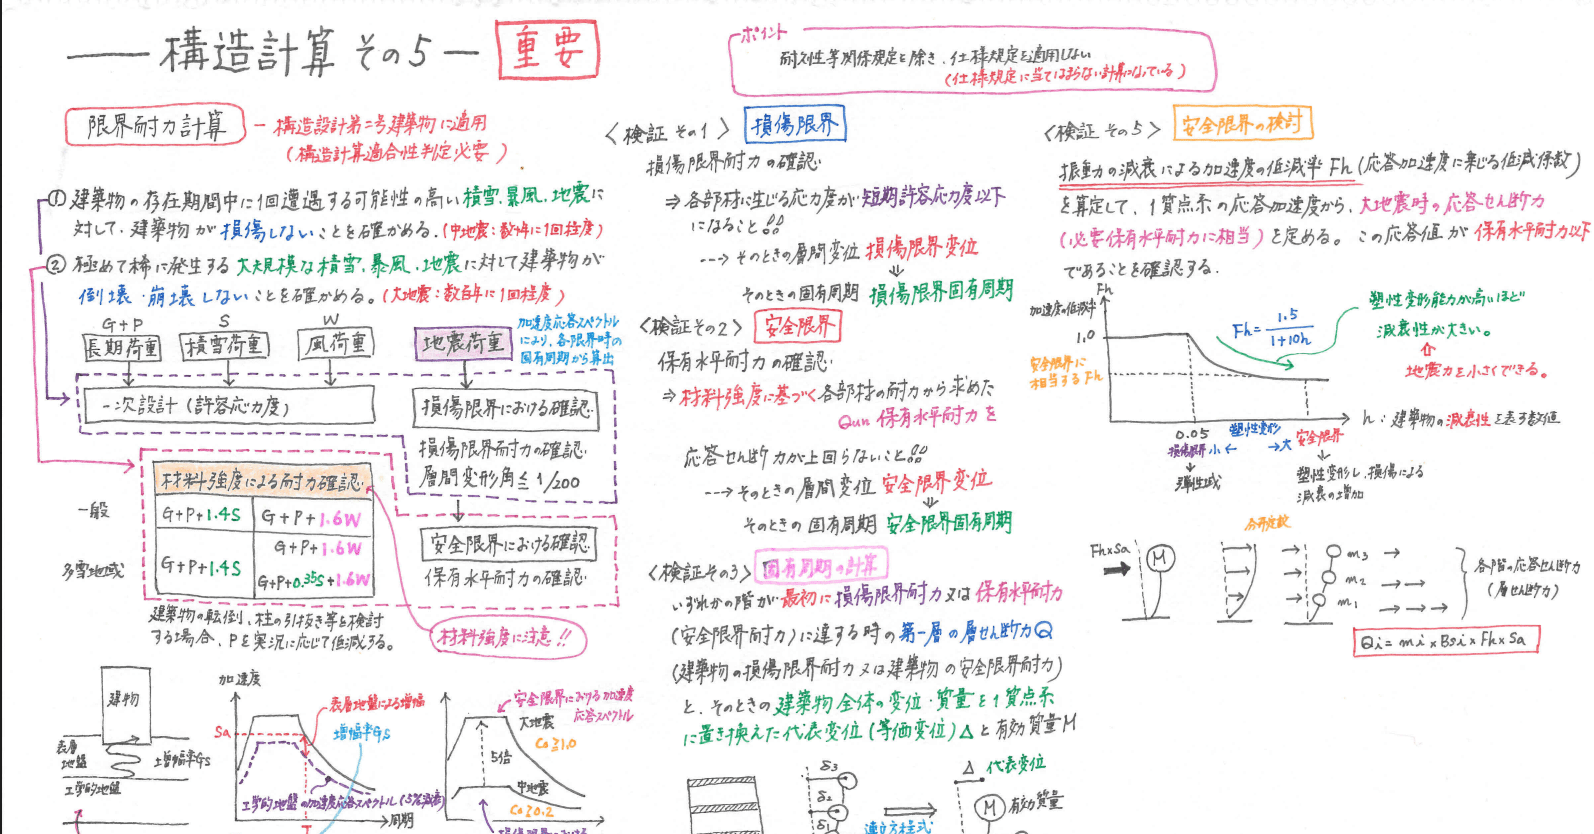 構造計算 その5 重要
ポイント
耐久性等関係規定を除き、仕様規定を適用しない
(仕様規定に当てはまらない計算になっている)
限界耐力計算 - 構造設計第二号建築物に適用
(構造計算適合性判定必要)
① 建築物の存在期間中に1回遭遇する可能性の高い積雪、暴風、地震に
対して、建築物が損傷しないことを確かめる。(中地震:数十年に1回程度)
② 極めて稀に発生する大規模な積雪、暴風、地震に対して建築物が
倒壊・崩壊しないことを確かめる。(大地震:数百年に1回程度)
G+P
長期荷重
S
積雪荷重
W
風荷重
地震荷重
加速度応答スペクトル
により、各限界時の
固有周期から算出
一次設計(許容応力度)
損傷限界における確認
損傷限界耐力の確認
層間変形角≦1/200
材料強度による耐力確認
一般
G+P+1.4S
G+P+1.6W
多雪地域
G+P+1.4S
G+P+1.6W
G+P+0.35S+1.6W
安全限界における確認
保有水平耐力の確認
建築物の転倒、柱の引抜き等を検討
する場合、Pを実況に応じて低減する。
材料強度に注意!!
建物
表層
地盤
増幅率Gs
工学的地盤
加速度
Sa
表層地盤による増幅
増幅率Gs
工学的地盤の加速度応答スペクトル(5%減衰)
周期
T
安全限界における加速度
応答スペクトル
大地震
Co≧1.0
5倍
中地震
Co≧0.2
損傷限界における
<検証 その1> 損傷限界
損傷限界耐力の確認
⇒ 各部材に生じる応力度が短期許容応力度以下
になること!!
---> そのときの層間変位 損傷限界変位
そのときの固有周期 損傷限界固有周期
<検証 その2> 安全限界
保有水平耐力の確認
⇒ 材料強度に基づく各部材の耐力から求めた
Qun 保有水平耐力を
応答せん断力が上回らないこと!!
---> そのときの層間変位 安全限界変位
そのときの固有周期 安全限界固有周期
<検証その3> 固有周期の計算
いずれかの階が最初に損傷限界耐力又は保有水平耐力
(安全限界耐力)に達する時の第一層の層せん断力Q
(建築物の損傷限界耐力又は建築物の安全限界耐力)
と、そのときの建築物全体の変位・質量を1質点系
に置き換えた代表変位(等価変位)Δと有効質量M
δ3
δ2
δ1
連立方程式
Δ 代表変位
M 有効質量
<検証 その5> 安全限界の検討
振動の減衰による加速度の低減率 Fh (応答加速度に乗じる低減係数)
を算定して、1質点系の応答加速度から、大地震時の応答せん断力
(必要保有水平耐力に相当)を定める。この応答値が保有水平耐力以下
であることを確認する。
Fh
加速度の低減率
1.0
安全限界に
相当するFh
Fh=1.5/1+10h
塑性変形能力が高いほど
減衰性が大きい。
地震力を小さくできる。
h:建築物の減衰性を表す数値
0.05
塑性変形
損傷限界 小 ← → 大 安全限界
弾性域
塑性変形し、損傷による
減衰の増加
Fh×Sa
M
分布係数
m3
m2
m1
各階の応答せん断力
(層せん断力)
Qi=mi×Bsi×Fh×Sa